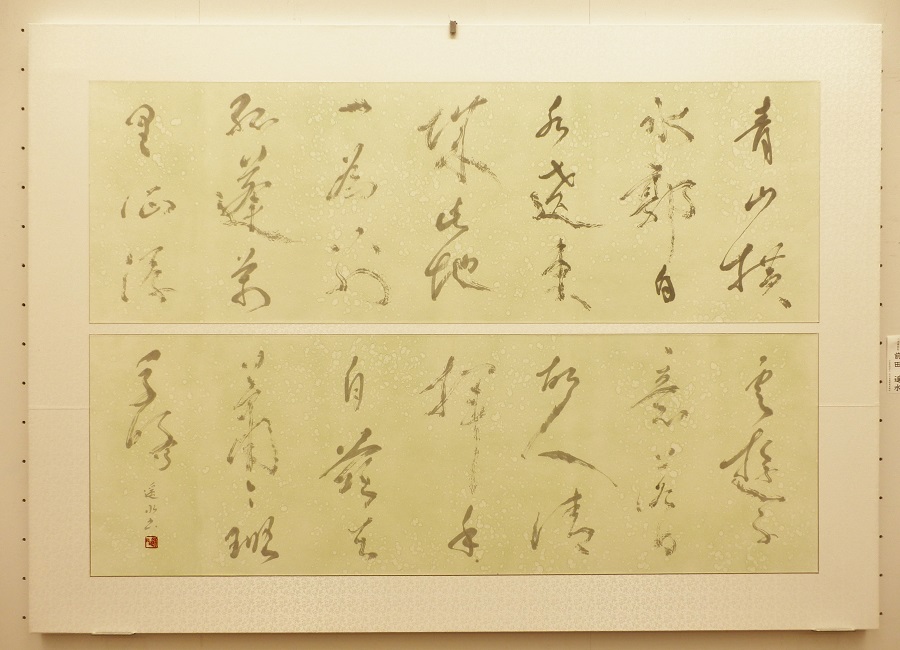 青山横
北郭白
水遶東
城此地
一為別
孤蓬萬
里征浮
雲遊子
意落日
故人情
揮手
自茲去
蕭々班
馬鳴
遥水書